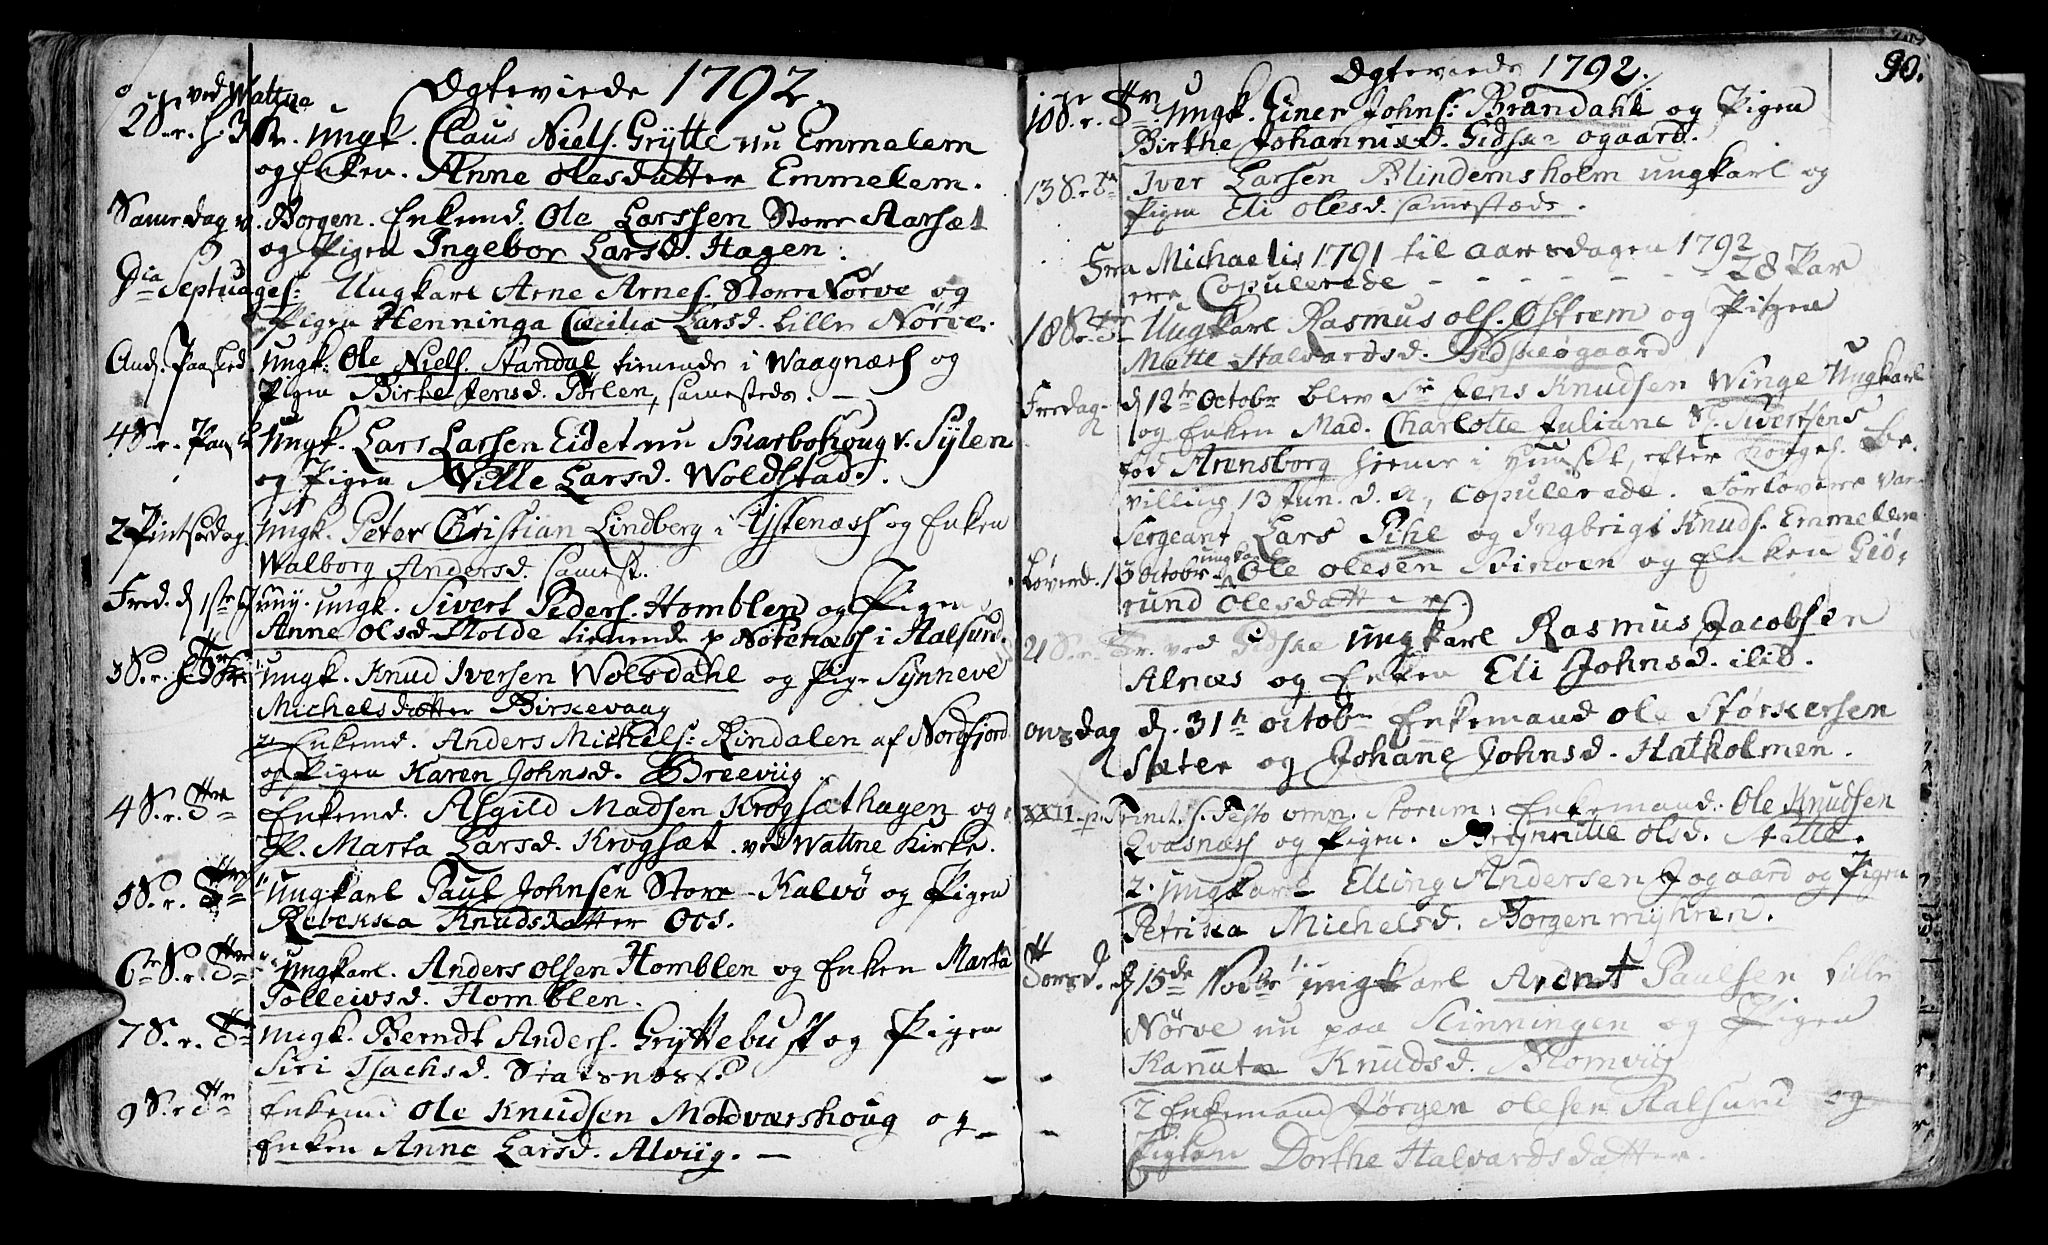 Ægteviede 1792.
ved Wattne
2 S. e. H. 3 K. Ungk. Claus Niels. Grytte nu Emmelem
og Enken. Anne Olesdatter Emmelem.
Samedag v. Borgen. Enkemd. Ole Larssen Store Aarsæt
og Pigen Ingebor Larsd. Hagen.
Dca Septuages: Ungkarl Arne Arnes. Store Nørve og
Pigen Henninga Cæcilia Larsd. Lille Nørve.
And. Paasked. Ungk. Ole Niels. Standal tienende i Waagnæss og
Pigen Birte Jensd. samesteds. –
4 S. e. Paask. Ungk. Lars Larsen Eidet nu Skarbohoug v. Sylen
og Pigen Nille Larsd. Woldstad.
2 Pintsedag. Ungk. Peter Christian Lindberg i Ystenæss og Enken
Walborg Andersd. samest.
Fred. d. 1ste Juny. Ungk. Sivert Peders. Homblen og Pigen
Anne Olsd. Molde tienende p Nørenæss i Aalsund.
3 S. e. Tr. Ungk. Knud Iversen Wolsdahl og Pige Synneve
Michelsdatter Birkevaag
2. Enkemd. Anders Michels: Rindalen af Nordfjord
og Pigen Karen Johnsd. Breeviig
4 S. e. Tr. Enkemd. Asgild Madsen Krogsæthagen og
P. Marta Larsd. Krogsæt. ved Wattne Kirke.
5 S. e. Tr. Ungkarl Paul Johnsen Store Kalvø og Pigen
Rebekka Knudsdatter Oos.
6te S. e. Tr. Ungkarl. Anders Olsen Homblen og Enken Marta
Tolleivsd. Homblen.
7 S. e. Tr. Ungk. Berndt Anders. Gryttebust og Pigen
Siri Isachsd. Slatsnæs.
9 S. e. Tr. Enkemd Ole Knudsen Moldværshoug og
Enken Anne Larsd. Alviig. –
Ægteviede 1792.
90.
10 S. e. Tr. Ungk. Einer Johns: Brandahl og Pigen
Birthe Johannisd. Gidskeøgaard.
13 S. e. Tr. Iver Larsen Blindemsholm ungkarl og
Pigen Eli Olesd. sammestæds.
Fra Michaelis 1791 til Aarsdagen 1792
ere Copulerede - - - - - - 28 Par
18 S. e. Tr. Ungkarl Rasmus Ols. Østrem og Pigen
Mætte Halvardsd. Gidskeøgaard
Fredag d. 12te Octobr blev Sr Jens Knudsen Winge Ungkarl
og Enken Mad. Charlotte Juliane Sl. Sivertsens
fød Arensborg hjemme i Huuset, efter Kongel. Be-
villing 13 Jun. d. A., Copulerede. Forlovere var
Sergeant Lars Pihl og Ingbrigt Knuds. Emmelem
Løverd. 13 Octobr ungkarl Ole Olesen Svinøen og Enken Giø-
rund Olesdatter.
21 S. e. Tr. ved Gidske Ungkarl Rasmus Jacobsen
Alnæs og Enken Eli Johnsd. ibid.
Onsdag d. 31te Octobr Enkemand Ole Størkersen
Sæter og Johanne Johnsd. Hatholmen.
XXII. p. Trinit. s. Festo omn. Storum: Enkemand. Ole Knudsen
Qvasnæss og Pigen. Brynnille Olsd. Slatte.
2. Ungkarl Elling Andersen Øgaard og Pigen
Petrikka Michelsd. Borgenmyhren.
Torsd. d. 15de Novbr 1. Ungkarl Arent Paulsen Lille
Nørve nu paa Slinningen og Pigen
Kanuta Knudsd. Blomviig
2 Enkemand Jørgen Olesen Aalsund og
Pigen Dorthe Halvardsdatter.